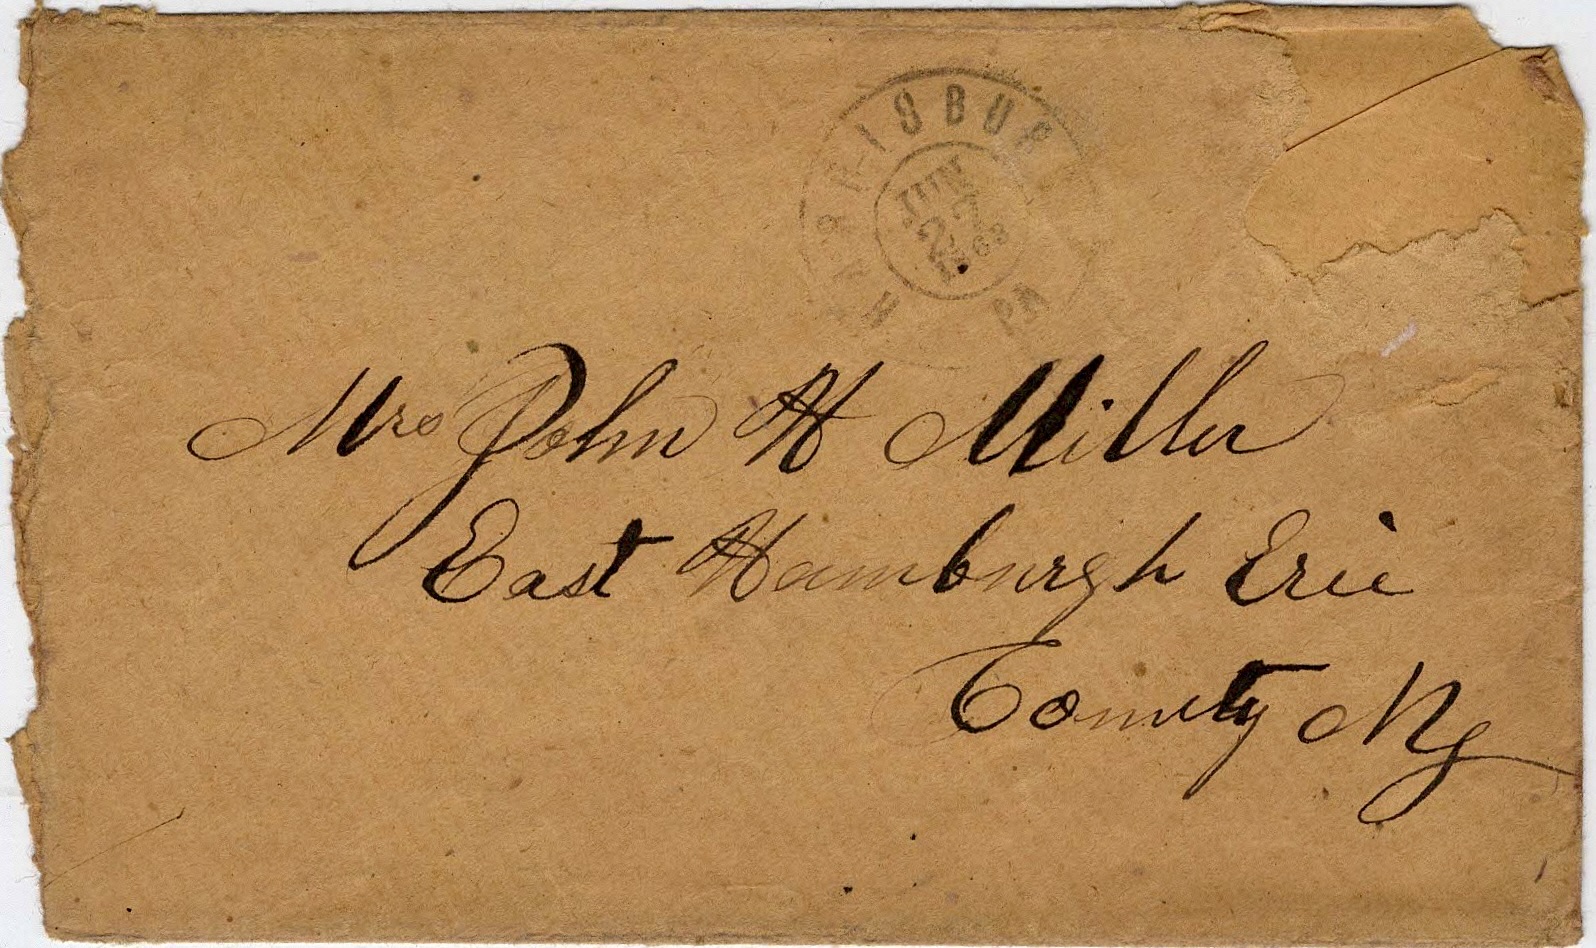 HARRISBURG PA
JUN
27
1863
Mrs John H Miller
East Hamburgh Erie
County Ny